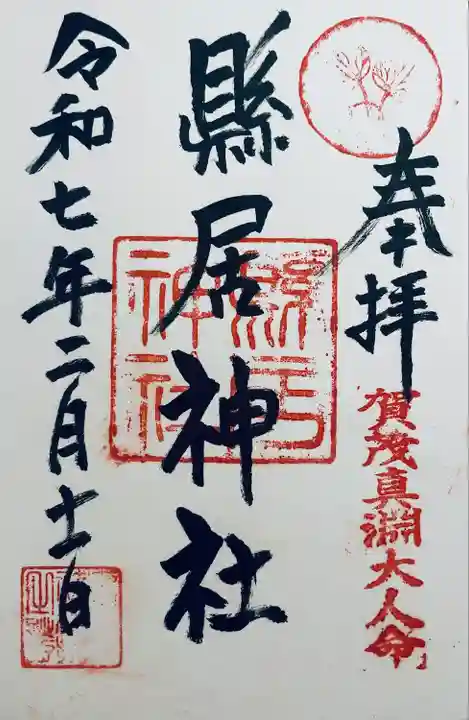 奉拝
賀茂真淵大人命
縣居神社
縣居
神社
令和七年二月十一日